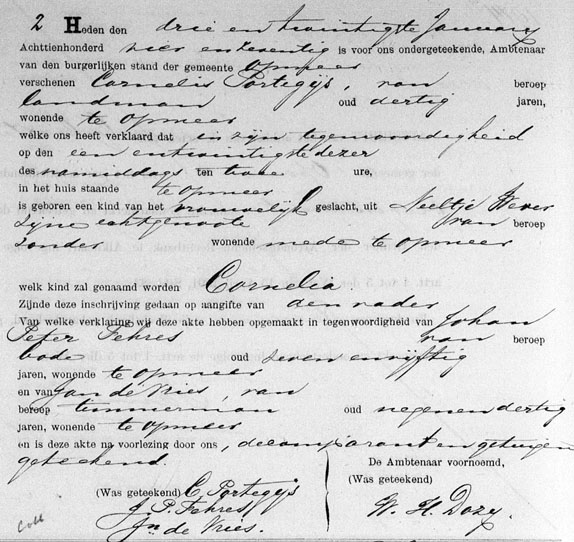 2 Heden den drie en twintigste Januarij
Achttienhonderd vier en zeventig is voor ons ondergeteekende, Ambtenaar
van den burgerlijken stand der gemeente Opmeer
verschenen Cornelis Portegijs, van beroep
landman oud dertig jaren,
wonende te Opmeer
welke ons heeft verklaard dat in zijn tegenwoordigheid
op den een en twintigste dezer
des namiddags ten twee ure,
in het huis staande te Opmeer
is geboren een kind van het vrouwelijk geslacht, uit Neeltje Wever
zijne echtgenoote van beroep
zonder wonende mede te Opmeer
welk kind zal genaamd worden Cornelia.
Zijnde deze inschrijving gedaan op aangifte van den vader
Van welke verklaring wij deze akte hebben opgemaakt in tegenwoordigheid van Johan
Peter Fehres van beroep
bode oud zeven en vijftig
jaren, wonende te Opmeer
en van Jan de Vries, van
beroep timmerman oud negen en dertig
jaren, wonende te Opmeer
en is deze akte na voorlezing door ons, de comparant en getuigen
geteekend.
De Ambtenaar voornoemd,
(Was geteekend) C. Portegijs (Was geteekend)
J. P. Fehres W. H. Dozy.
Jn de Vries.
Coll